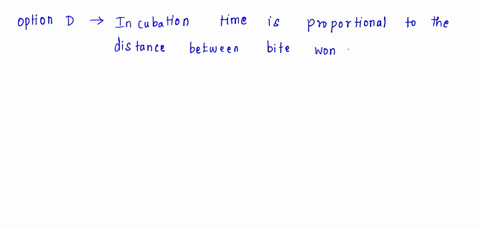 option D → Incubation time is proportional to the
distance between bite won